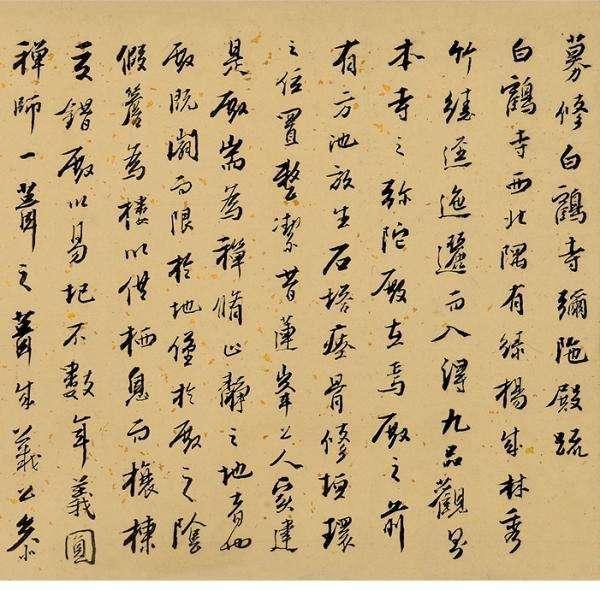 募修白鶴寺彌陁殿疏
白鶴寺西北隅有綠楊成林秀
竹繞逕迤邐而入得九品觀
本寺之弥陀殿在焉殿之前
有方池放生石塔瘞骨修垣環
之位置整潔昔蓮峯上人寔建
是殿耑為禪脩止靜之地
殿既而限於地僅於殿之陰
假簷為樓以供栖息而榱棟
交錯殿以易圮不數年義圓
禪師一葺之葺成義公